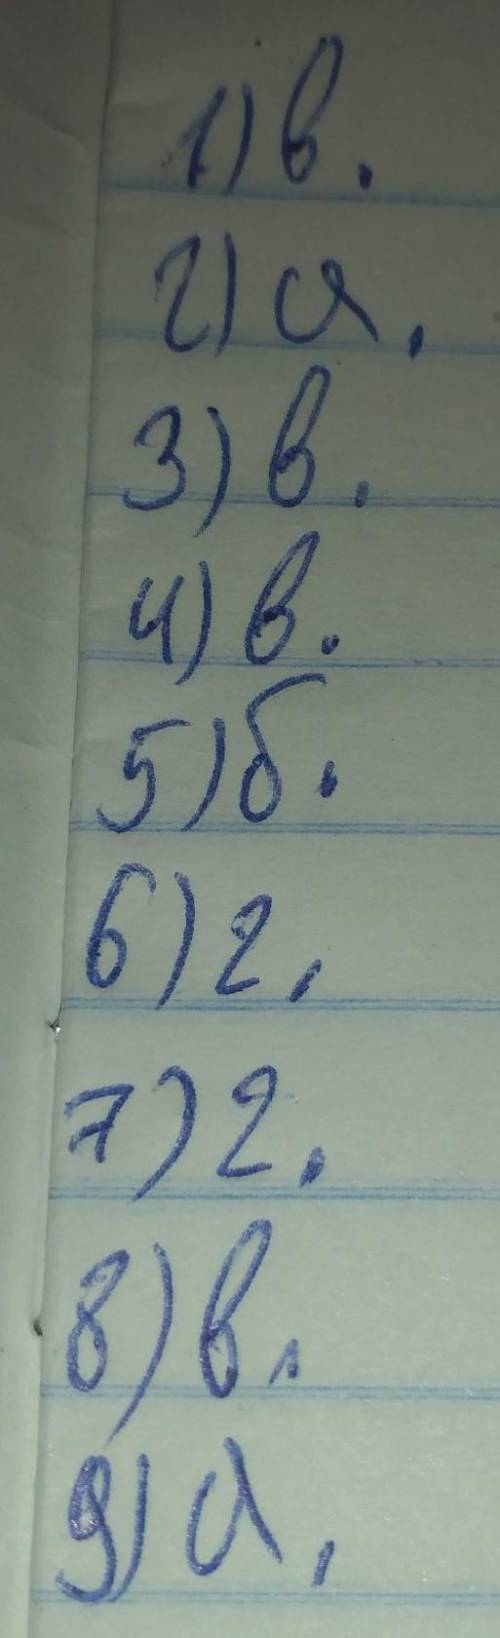 1) в.
2) а.
3) в.
4) в.
5) б.
6) г.
7) г.
8) в.
9) а.